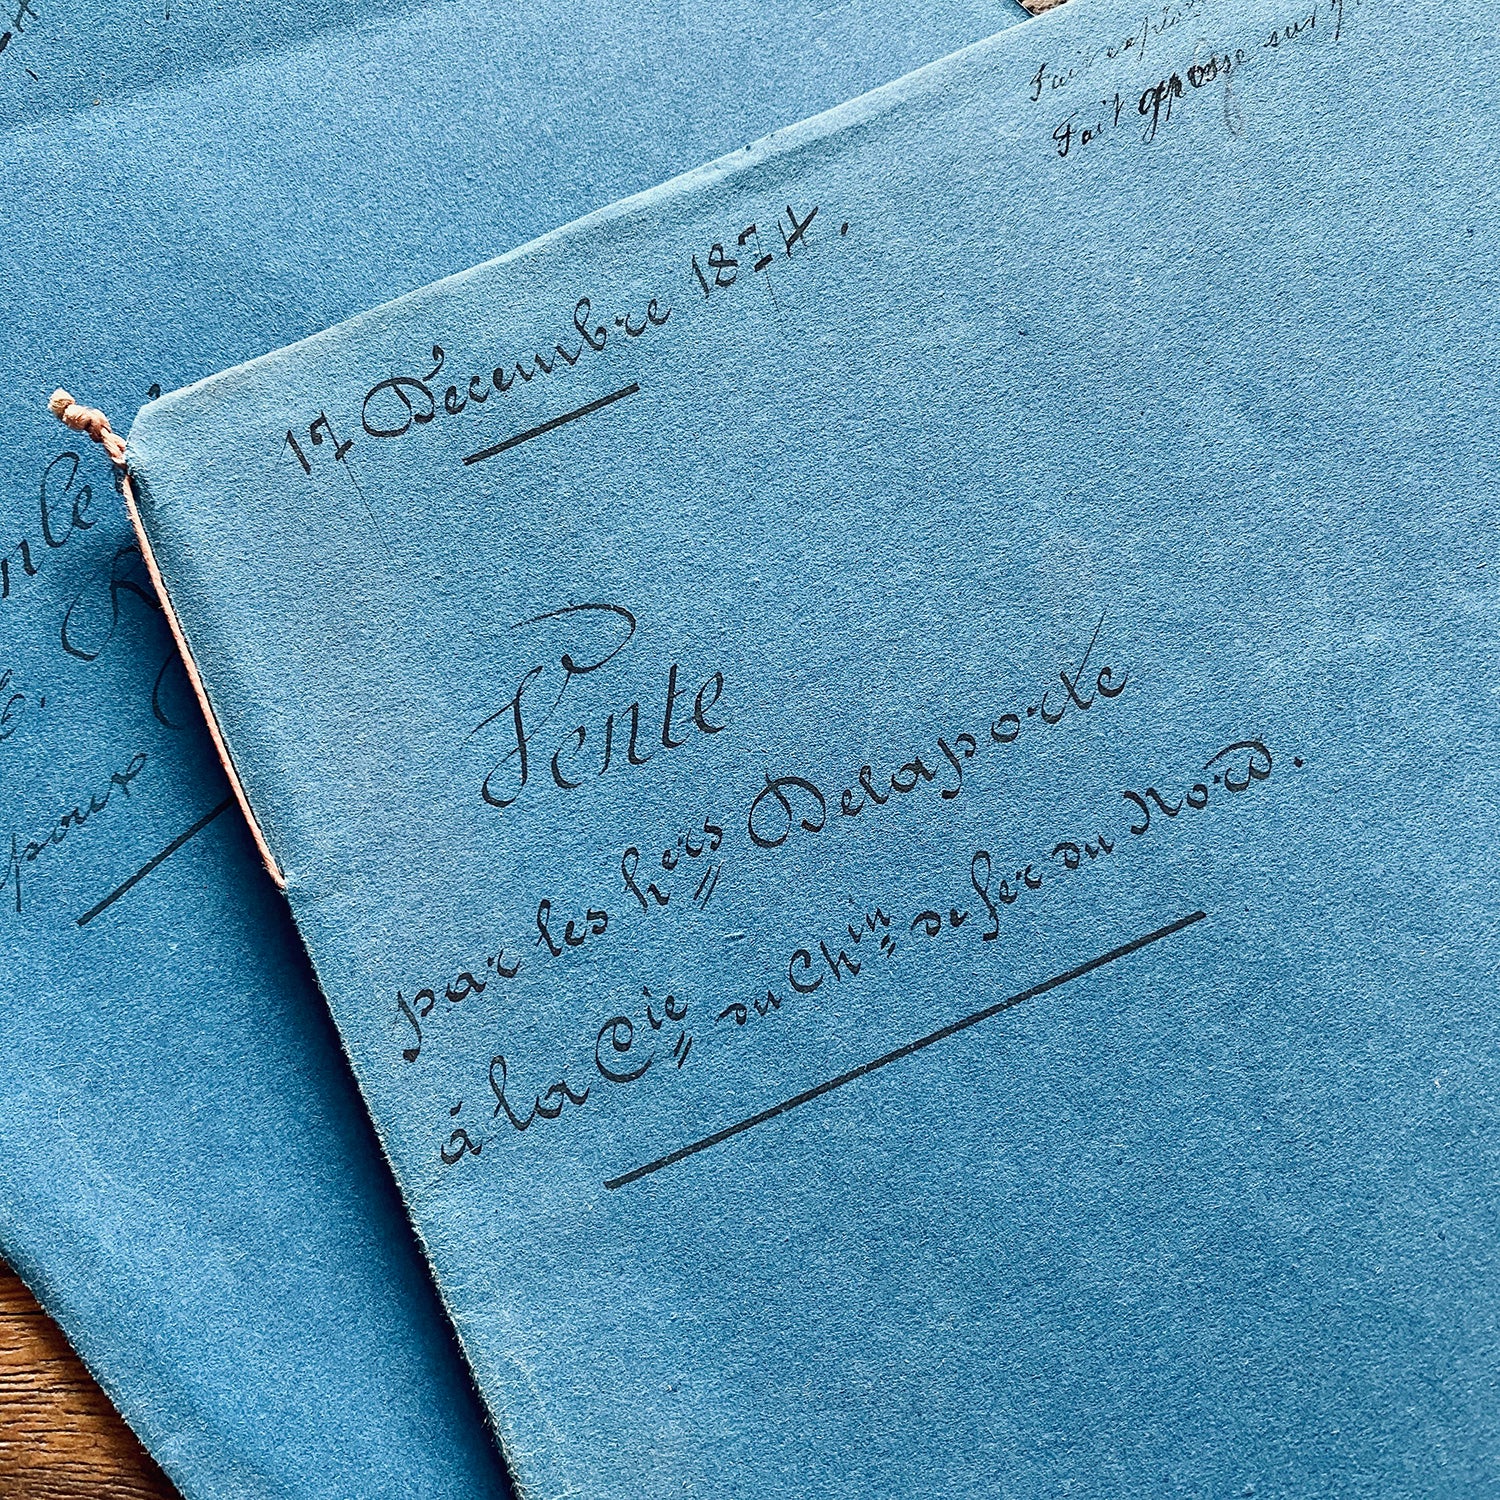 Fait
Fait grosse sur
17 Décembre 1874.
Vente
par les hers Delaporte
à la Cie du Chin de fer du Nord.
poux